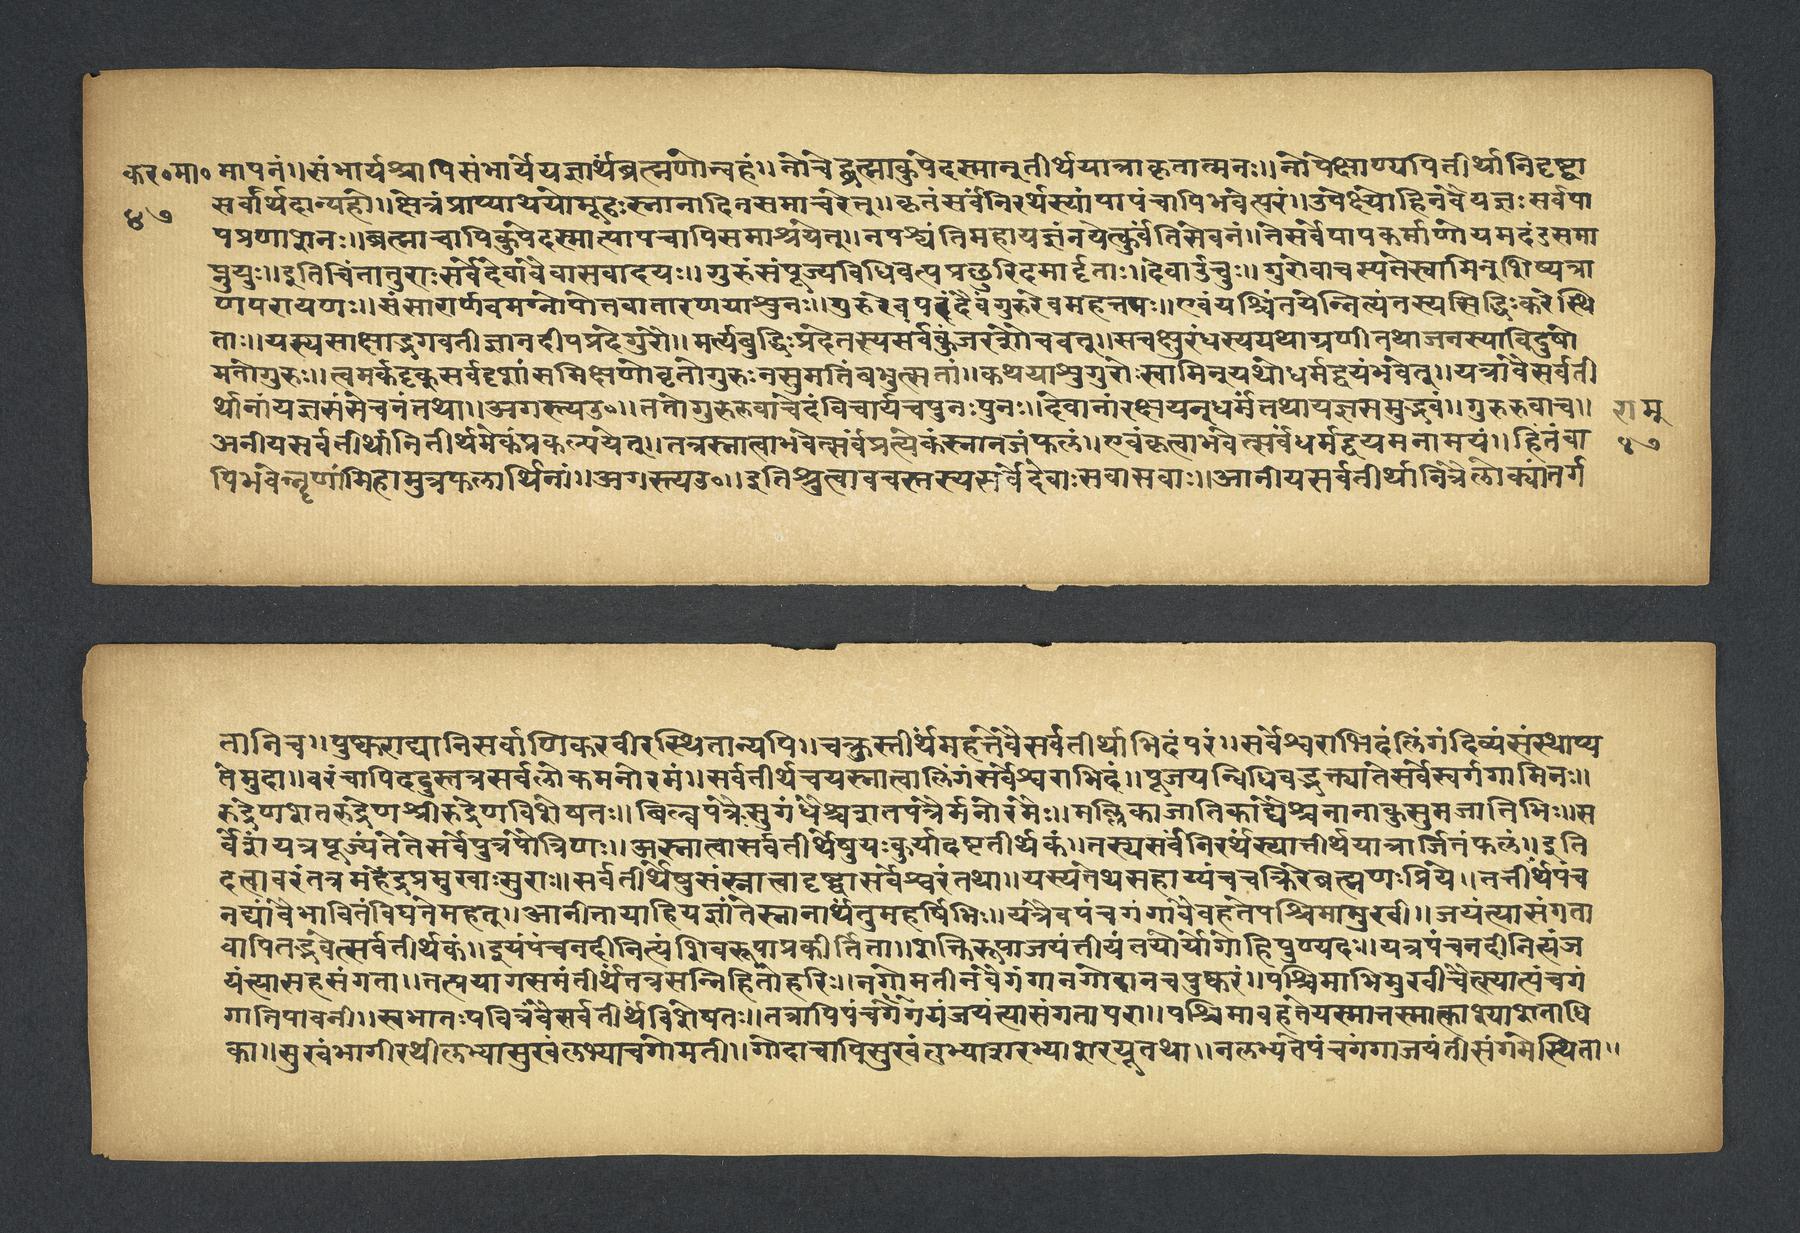 कर॰मा॰ मापनं॥संभार्यश्चापिसंभार्यैयज्ञार्थंब्रह्मणोन्वहं॥नोचेद्ब्रह्माकुपेदस्मानुतीर्थयात्राकृतात्मनः॥नोपेक्षाण्यपितीर्थानिदृष्ट्वा
४७ सर्वार्थदान्यहो॥क्षेत्रंप्राप्याथयोमूढःस्नानादिनसमाचरेत्॥कृतंसर्वंनिरर्थंस्यापापंचापिभवेत्परं॥उपेक्ष्योहिनवैयज्ञःसर्वपा
पप्रणाशनः॥ब्रह्माचापिकुपेदस्मात्पापचापिसमाश्रयेत्॥नपश्यंतिमहायज्ञंनयेत्कुर्वंतिसेवनं॥तेसर्वेपापकर्माणोयमदंडसमा
प्नुयुः॥इतिचिंतातुराःसर्वेदेवावैवासवादयः॥गुरुंसंपूज्यविधिवत्पप्रछुरिदमादृताः॥देवाउचुः॥गुरोवाचस्पतेस्वामिन्शिष्यत्रा
णपरायणः॥संसारार्णवमग्नोपोतवातारणयाश्रुनः॥गुरुरेवपरंदैवंगुरुरेवमहत्तपः॥एवंयश्चिंतयेन्नित्यंतस्यसिद्धिःकरेस्थि
ताः॥यस्यसाक्षाद्भगवतीज्ञानदीपप्रदेगुरो॥मर्त्यबुद्धिःप्रदैतस्यसर्वंकुंजरशोचवत्॥सचक्षुरंधस्ययथाग्रणीतथाजनस्याविदुषो
मतोगुरुः॥त्वमर्कदृक्सर्वदृशांसमिक्षणोवृतोगुरुःनसुमतिंबभुत्सतां॥कथयाश्रुगुरोःस्वामिन्यथोधर्मद्वयंभवेत्॥यत्रावैसर्वती
र्थानांयज्ञसंसेचनंतथा॥अगस्त्यउ॰॥ततोगुरुरुवाचेदंविचार्यचपुनःपुनः॥देवानांरक्षयन्धर्मंतथायज्ञसमुद्भवं॥गुरुरुवाच॥ रामु
अनीयसर्वतीर्थानितीर्थमेकंप्रकल्पयेत्॥तत्रस्नात्वाभवेत्सर्वंप्रत्येकंस्नानजंफलं॥एवंकृत्वाभवेत्सर्वंधर्मद्वयमनामयं॥हितंवा ४७
पिभवेन्नॄणामिहामुत्रफलार्थिनां॥अगस्त्यउ॰॥इतिश्रुत्वावचस्तस्यसर्वेदेवाःसवासवाः॥आनीयसर्वतीर्थानित्रैलोक्यांतर्ग
तानिच॥पुष्कराद्यानिसर्वाणिकरवीरस्थितान्यपि॥चक्रुस्तीर्थमहत्तेवैसर्वतीर्थाभिदंपरं॥सर्वेश्वराभिदंलिंगंदिव्यंसंस्थाप्य
तेमुदा॥वरंचापिददुस्तत्रसर्वलोकमनोरमं॥सर्वतीर्थेचयस्नात्वालिंगंसर्वेश्वराभिदं॥पूजयन्विधिवद्भक्त्यातेसर्वेस्वर्गगामिनः॥
रुद्रेणशेतरुद्रेणश्रीरुद्रेणविशेषतः॥बिल्वपत्रैःसुगंधैश्चशतपत्रैर्मनोरमैः॥मल्लिकाजातिकाद्यैश्चनानाकुसुमजातिभिः॥स
र्वेशंयत्रपूज्यंतेतेसर्वेपुत्रपौत्रिणः॥अस्नात्वासर्वतीर्थेषुयःकुर्यादष्टतीर्थकं॥तस्यसर्वंनिरर्थंस्यात्तीर्थयात्रार्जितंफलं॥इति
दत्वावरंतत्रमहेंद्रप्रमुखाःसुराः॥सर्वतीर्थेषुसंस्नात्वादृष्ट्वासर्वेश्वरंतथा॥यस्यंतेथसहाय्यंचचक्रिरेब्रह्मणःप्रिये॥ततीर्थेपंच
नद्यांवैभावितंविघतेमहत्॥आनीतायाहियज्ञांतेस्नानार्थंतुमहर्षिभिः॥यत्रैवपंचगंगावैवहतेपश्चिमामुखी॥जयंत्यासंगता
वापितद्भवेत्सर्वतीर्थकं॥इयंपंचनदीनित्यंशिवरूपाप्रकीर्तिता॥शक्तिरूपाजयंतीयंतयोर्योगोहिपुण्यदः॥यत्रपंचनदीनित्यंज
यंत्यासहसंगता॥तत्प्रयागसमंतीर्थंतत्रसन्निहितोहरिः॥नगोमतीनवैगंगानगोदानचपुष्करं॥पश्चिमाभिमुखीचेत्स्यात्पंचगं
गातिपावनी॥स्वभातःपवित्रंवैसर्वतीर्थंविशेषतः॥तत्रापिपंचगंगेयंजयंत्यासंगतापरा॥पश्चिमावहतेयस्मात्तस्मात्काश्याशताधि
का॥सुखंभागीरथीलभ्यासुखंलभ्याचगोमती॥गोदाचापिसुखंलभ्याशरभ्याशरयूतथा॥नलभ्यतेपंचगंगाजयंतीसंगमेस्थिता॥